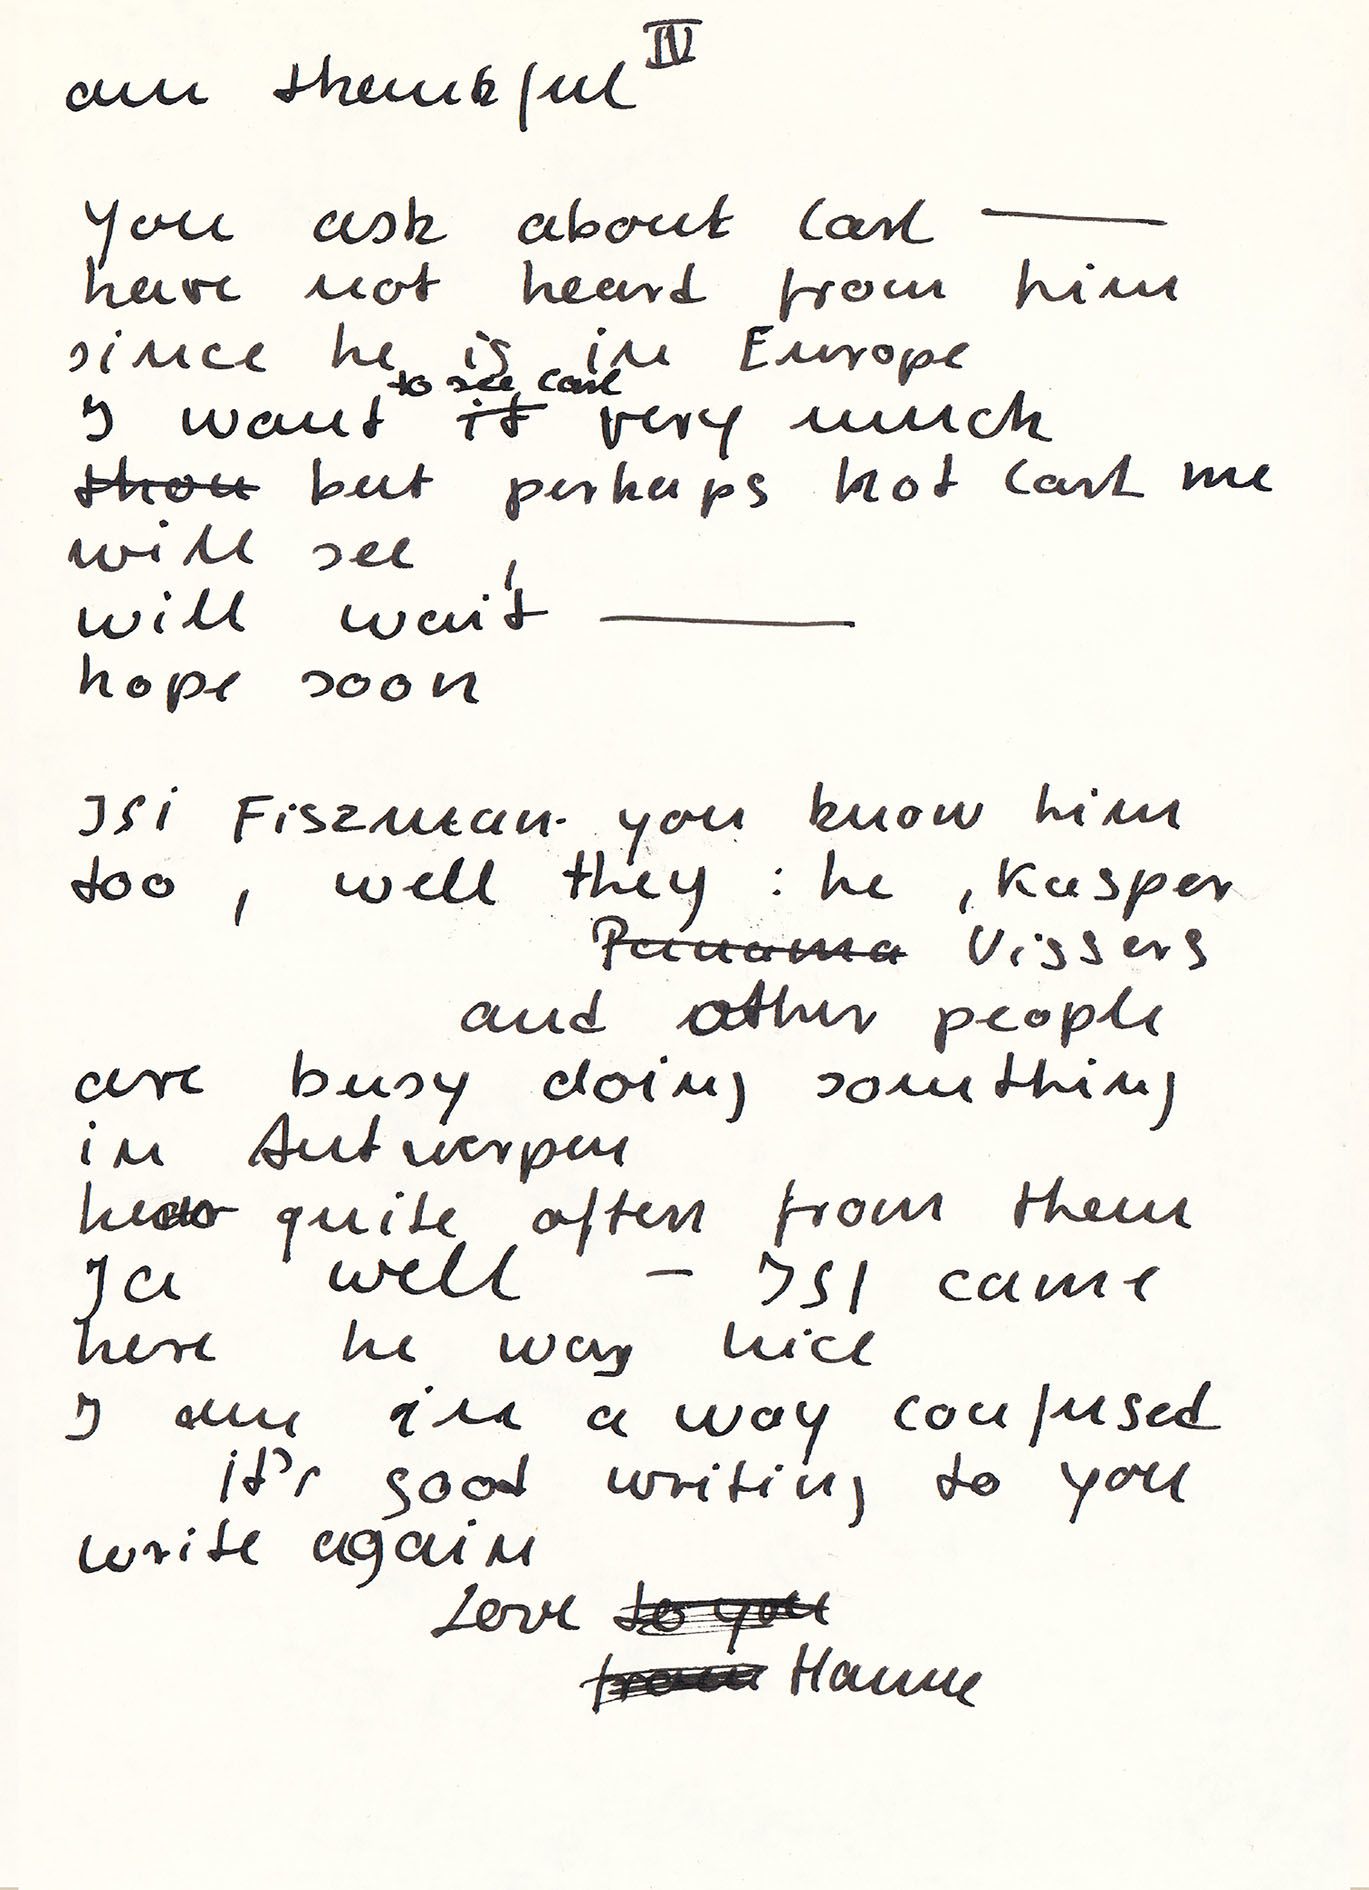 IV
am thankful
you ask about Carl ——
have not heard from him
since he is in Europe
to see Carl
I want it very much
thou but perhaps not Carl me
will see ,
will wait ——
hope soon
Isi Fiszman. you know him
too , well they : he , Kasper
Panama Vissers
and other people
are busy doing something
in Antwerpen
hear quite often from them
Ja well — ISI came
here he was nice
I am in a way confused
it's good writing to you
write again
Love to you
from Hanne